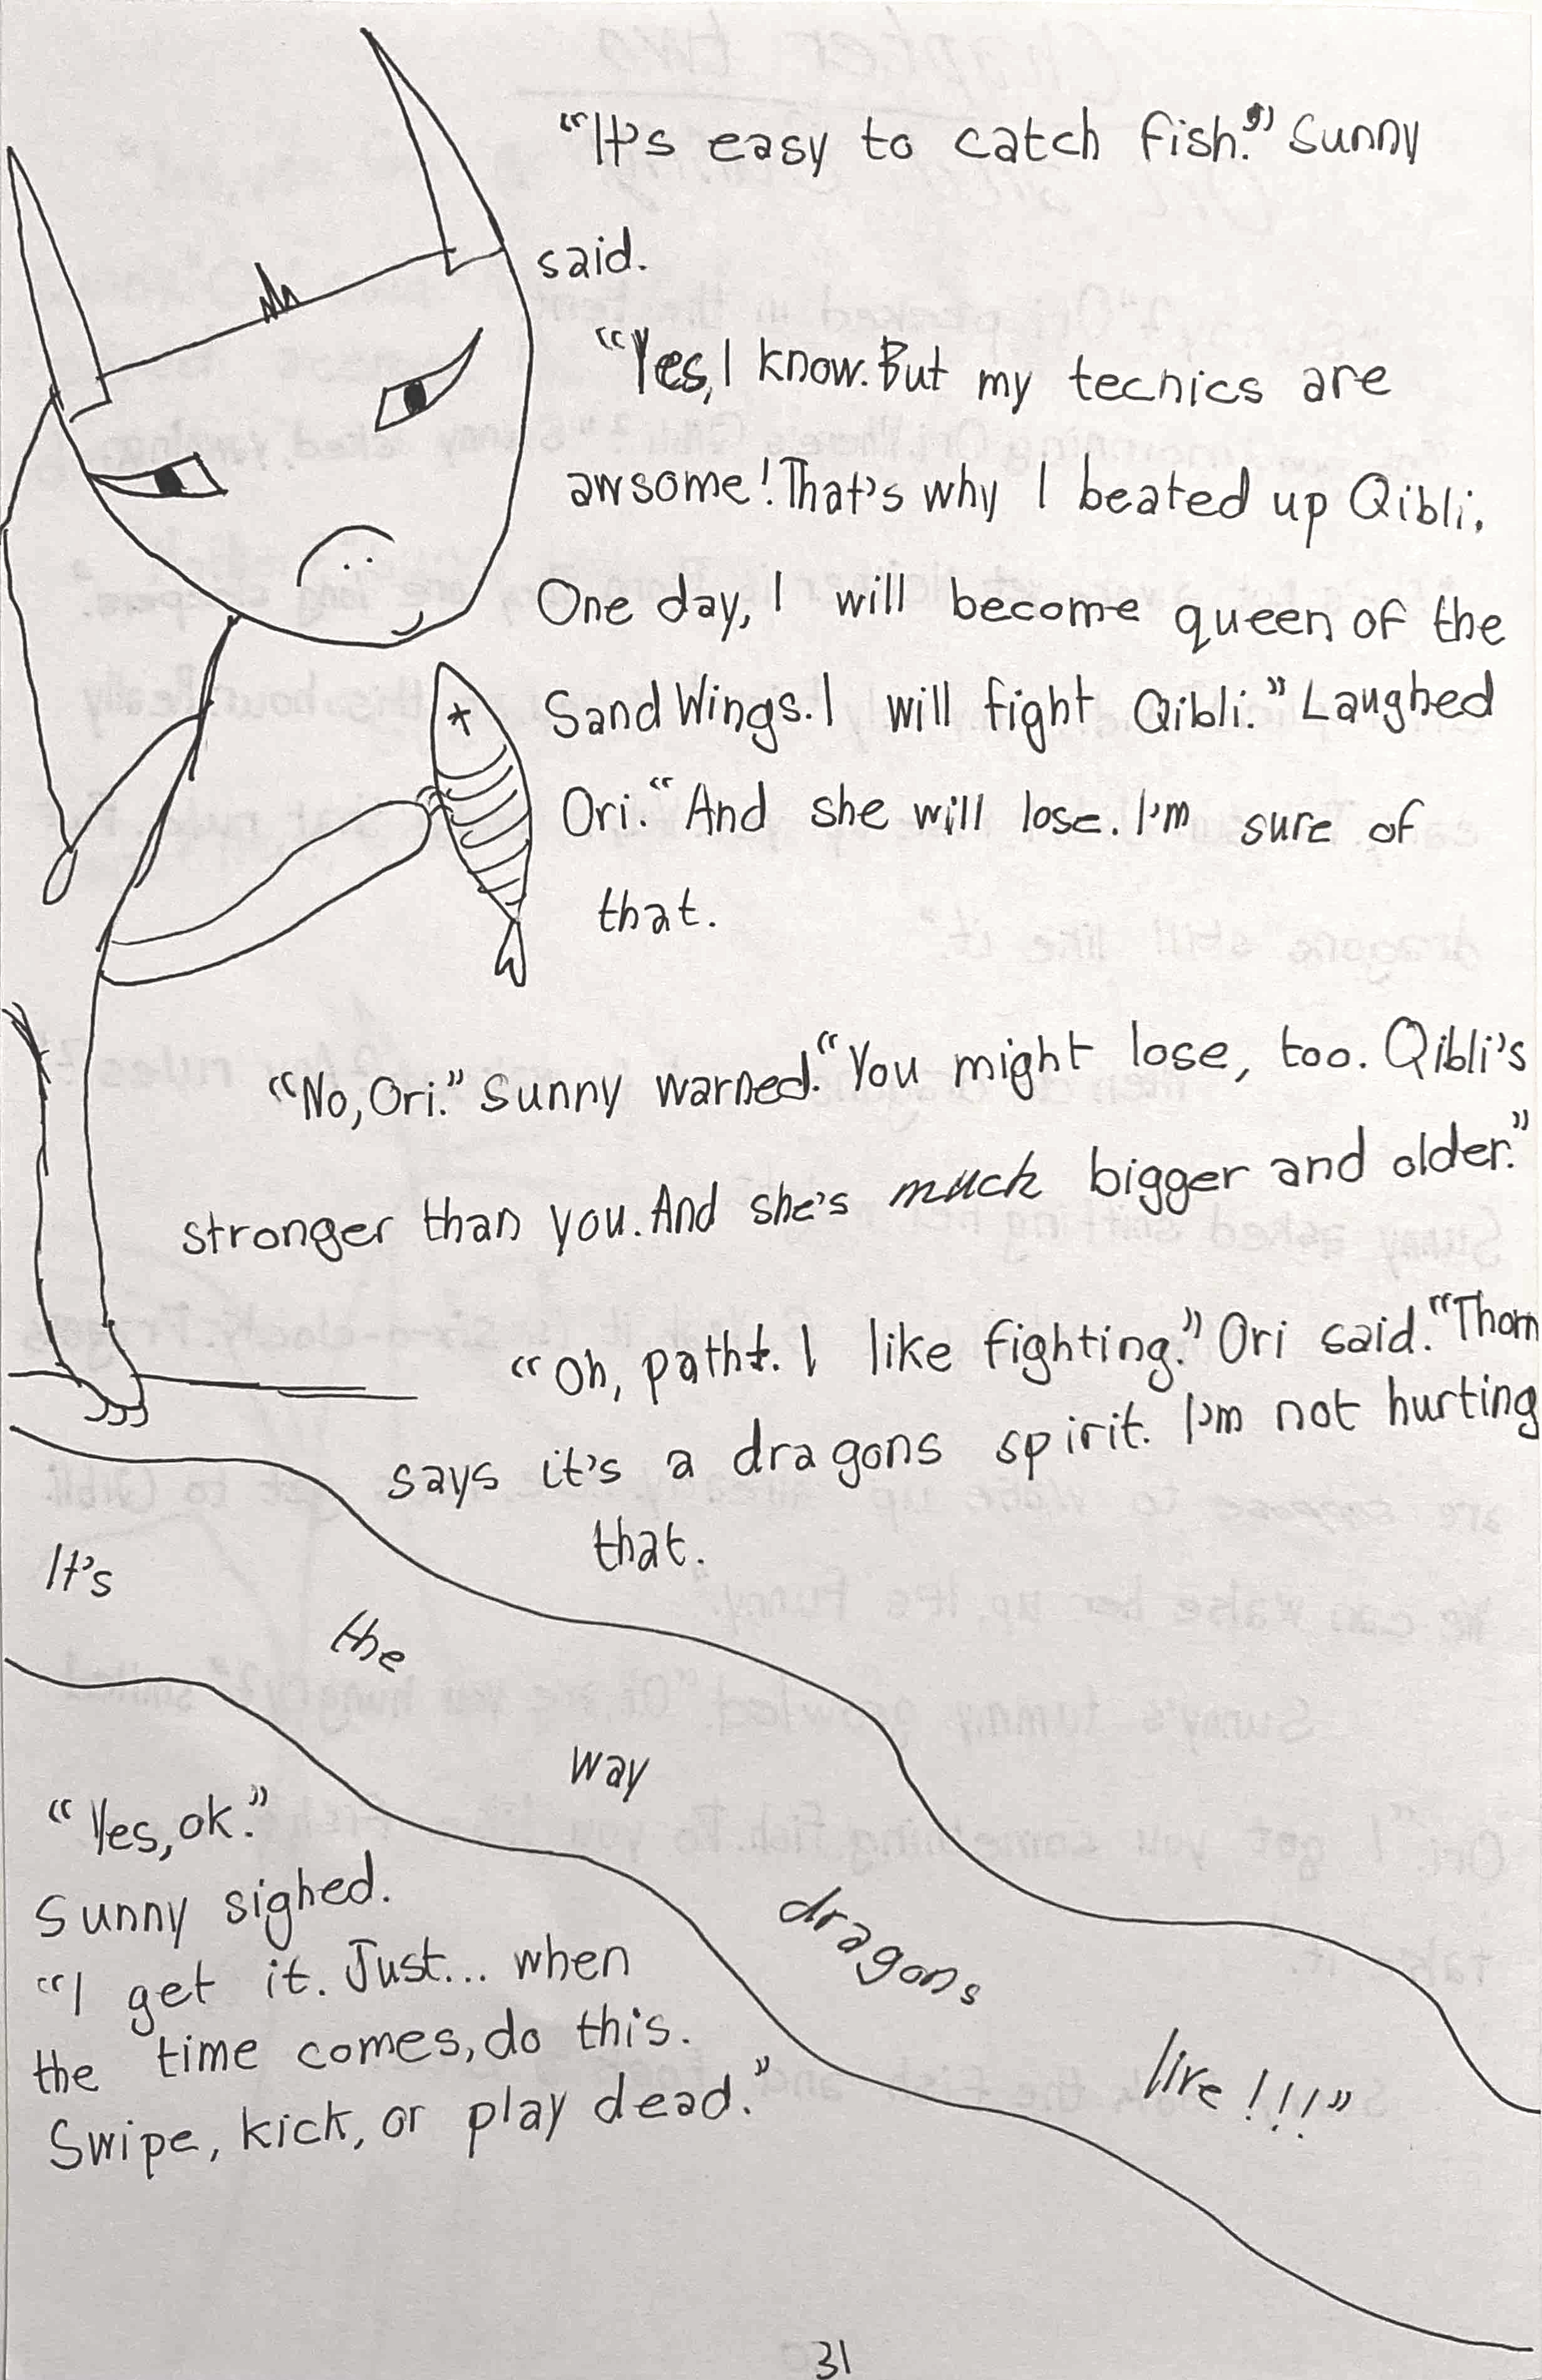 “It's easy to catch fish.” Sunny
said.
“Yes, I know. But my tecnics are
awsome! That's why I beated up Qibli.
One day, I will become queen of the
Sand Wings. I will fight Qibli.” Laughed
Ori. “And she will lose. I'm sure of
that.
“No, Ori.” Sunny warned. “You might lose, too. Qibli's
stronger than you. And she's much bigger and older.”
“Oh, patht. I like fighting.” Ori said. “Thorn
says it's a dragons spirit. I'm not hurting
that.
It's
the
way
dragons
live!!!”
“Yes, ok.”
Sunny sighed.
“I get it. Just... when
the time comes, do this.
Swipe, kick, or play dead.”
31